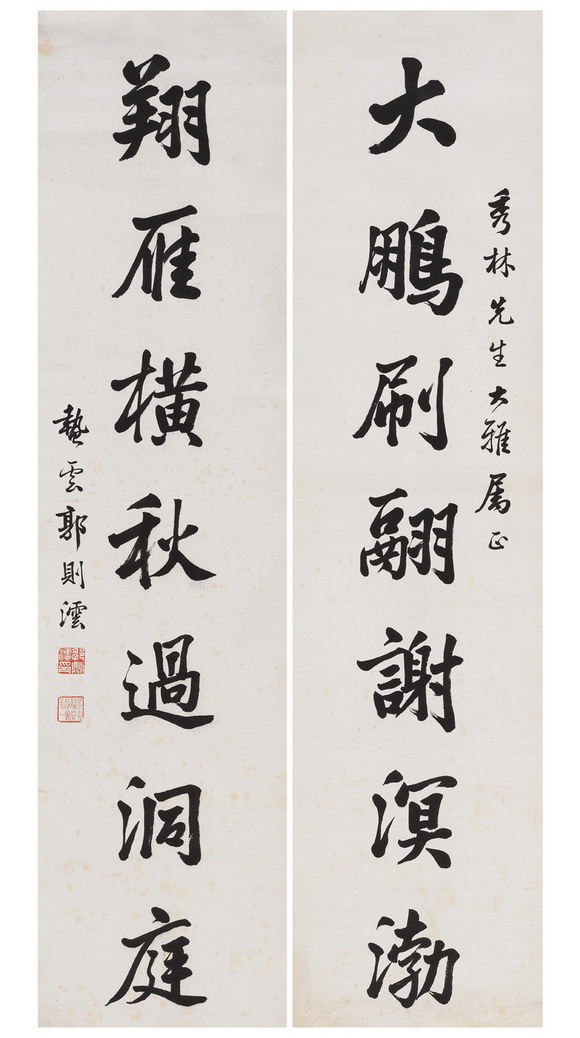 秀林先生大雅属正
大鵬刷翮謝溟渤
翔雁橫秋過洞庭
蟄雲郭則澐